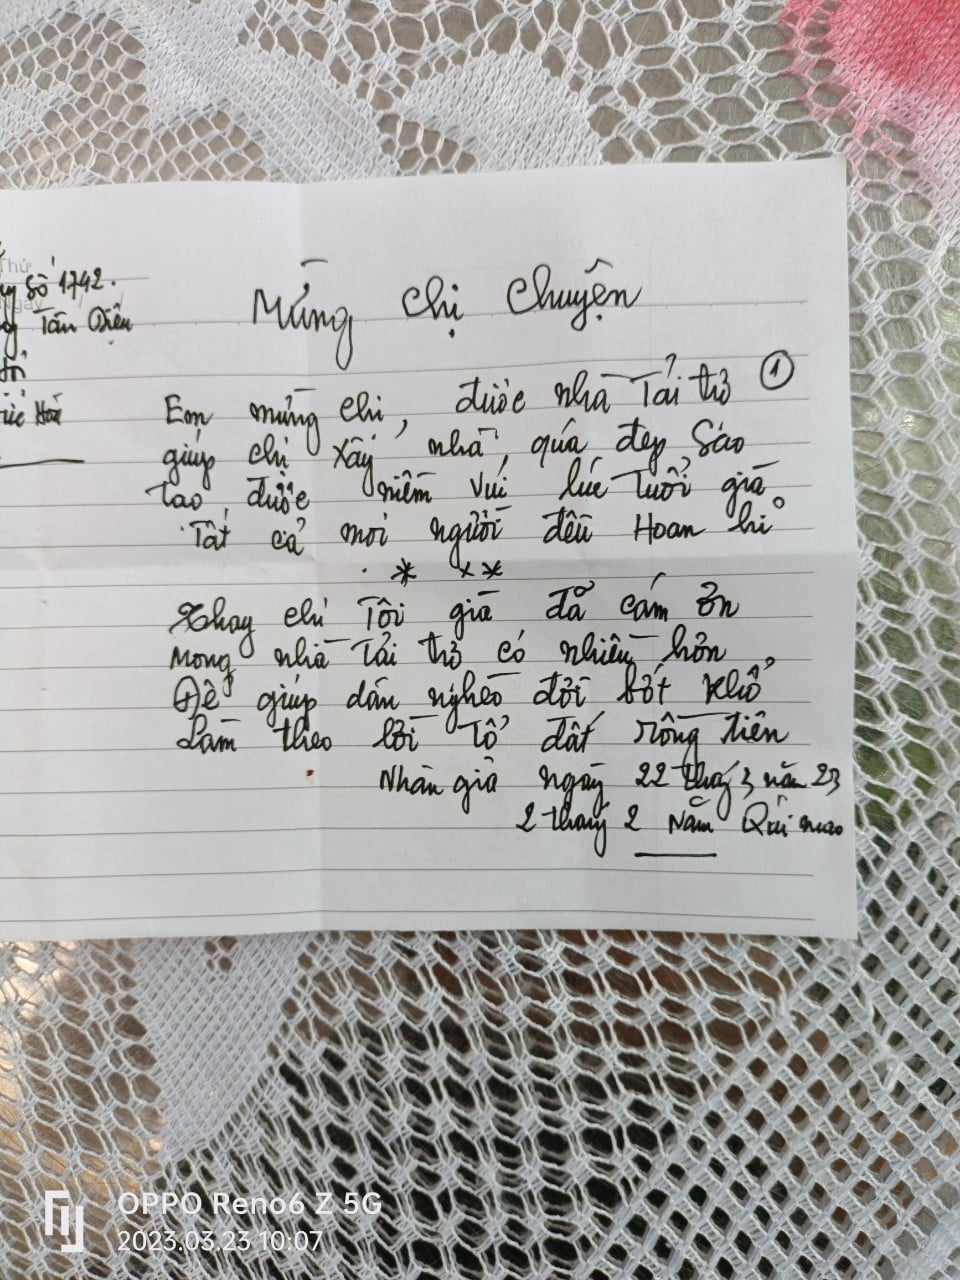 Thứ
Số 1742.
Ngày / /
Tấn Điệu
Mừng chị Chuyện
Em mừng chị, được nhà Tải trở ①
giúp chị xây nhà, qúa đẹp Sao
Tạo được niềm vui lúc Tuổi già
Tất cả mọi người đều Hoan hỉ
* **
Thay chị Tôi già đã cám ơn
Mong nhà Tải trở có nhiều hơn
Để giúp dân nghèo đời bớt Khổ
Làm theo lời Tổ đất rồng tiên
Nhàn giả ngày 22 tháng 3 năm 23
2 tháng 2 Năm Qúi mao
OPPO Reno6 Z 5G
2023.03.23 10:07